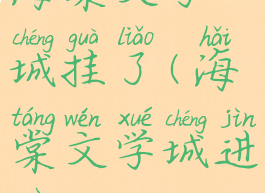 chéng guà liǎo hǎi
城挂了(海
táng wén xué chéng jìn
棠文学城进